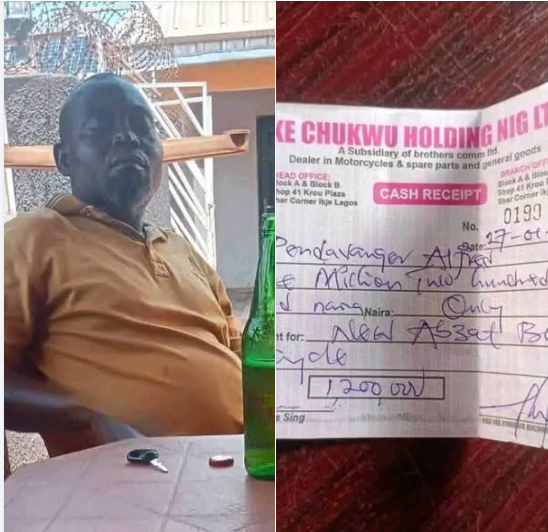 KE CHUKWU HOLDING NIG LT
A Subsidiary of brothers comm ltd.
Dealer in Motorcycles & spare parts and general goods
EAD OFFICE:
lock A & Block B
hop 41 Krou Plaza
har Corner Ikje Lagos
CASH RECEIPT
BRANCH OFF
Block A & Bloc
Shop 41 Krou
Shar Corner Ik
No. 0199
Date: 27-01-
Alfred
Million two hundred
Naira: Only
t for: New
1,200,000
s Sing